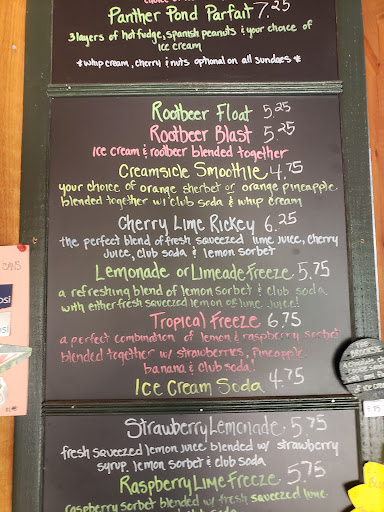 Panther Pond Parfait 7.25
3 layers of hot fudge, spanish peanuts & your choice of
ice cream
* whip cream, cherry & nuts optional on all sundaes *
Rootbeer Float 5.25
Rootbeer Blast 5.25
Ice cream & rootbeer blended together
Creamsicle Smoothie 4.75
your choice of orange sherbet or orange pineapple
blended together w/ club soda & whip cream
Cherry Lime Rickey 6.25
the perfect blend of fresh squeezed lime juice, cherry
juice, club soda & lemon sorbet
Lemonade or Limeade Freeze 5.75
a refreshing blend of lemon sorbet & club soda
with either fresh squeezed lemon or lime juice!
Tropical Freeze 6.75
a perfect combination of lemon & raspberry sorbet
blended together w/ strawberries, pineapple
banana & club soda!
Ice Cream Soda 4.75
Strawberry Lemonade 5.75
fresh squeezed lemon juice blended w/ strawberry
syrup, lemon sorbet & club soda
Raspberry Lime Freeze 5.75
raspberry sorbet blended w/ fresh squeezed lime